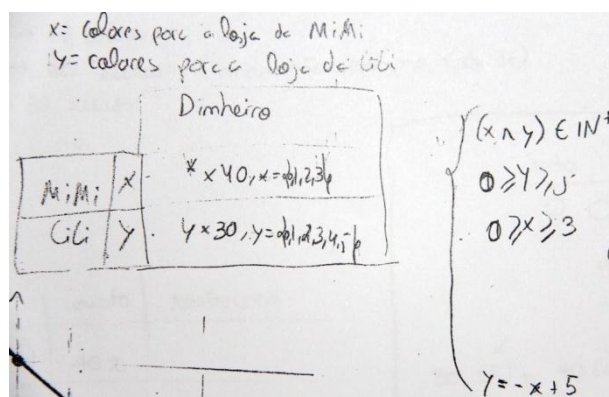 x= colores para a loja da MiMi
y= colores para a loja da Lili
Dinheiro
MiMi x x × 40, x = 0,1,2,3
Lili y y × 30, y = 0,1,2,3,4,5
(x ∧ y) ∈ IN+
0 ⩾ y ⩾ 5
0 ⩾ x ⩾ 3
y = -x + 5